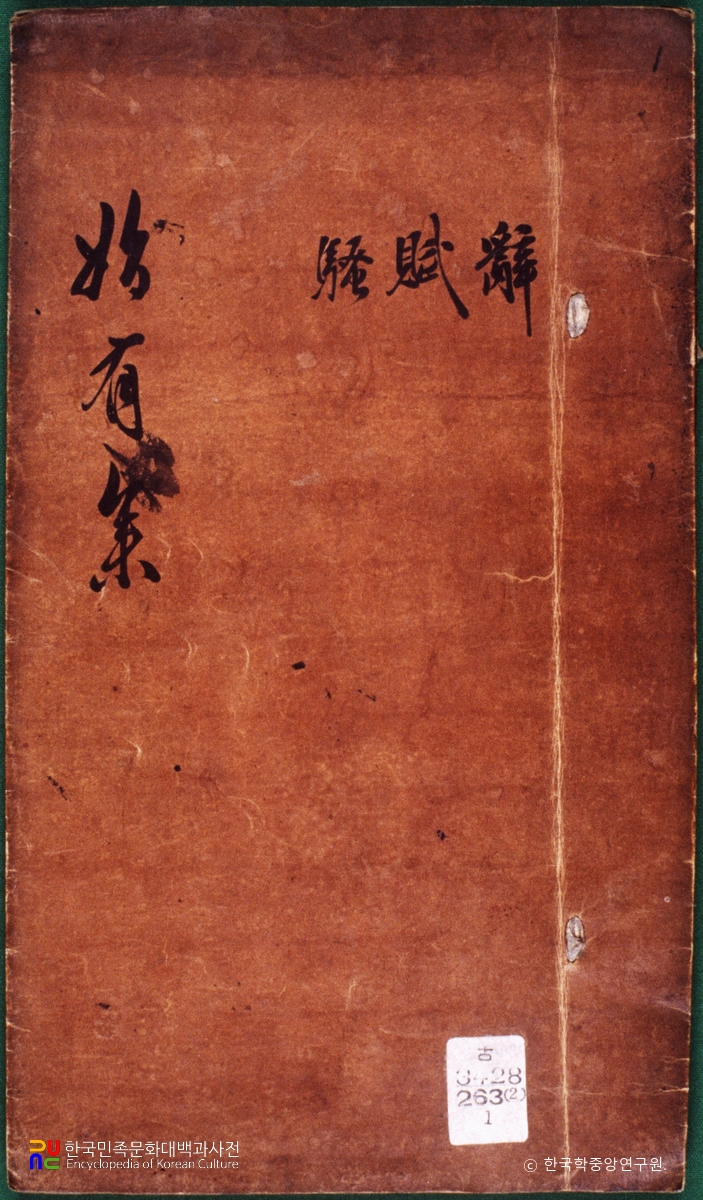 辭 賦 騷
始有
고
3428
263(2)
1
한국민족문화대백과사전
Encyclopedia of Korean Culture
© 한국학중앙연구원